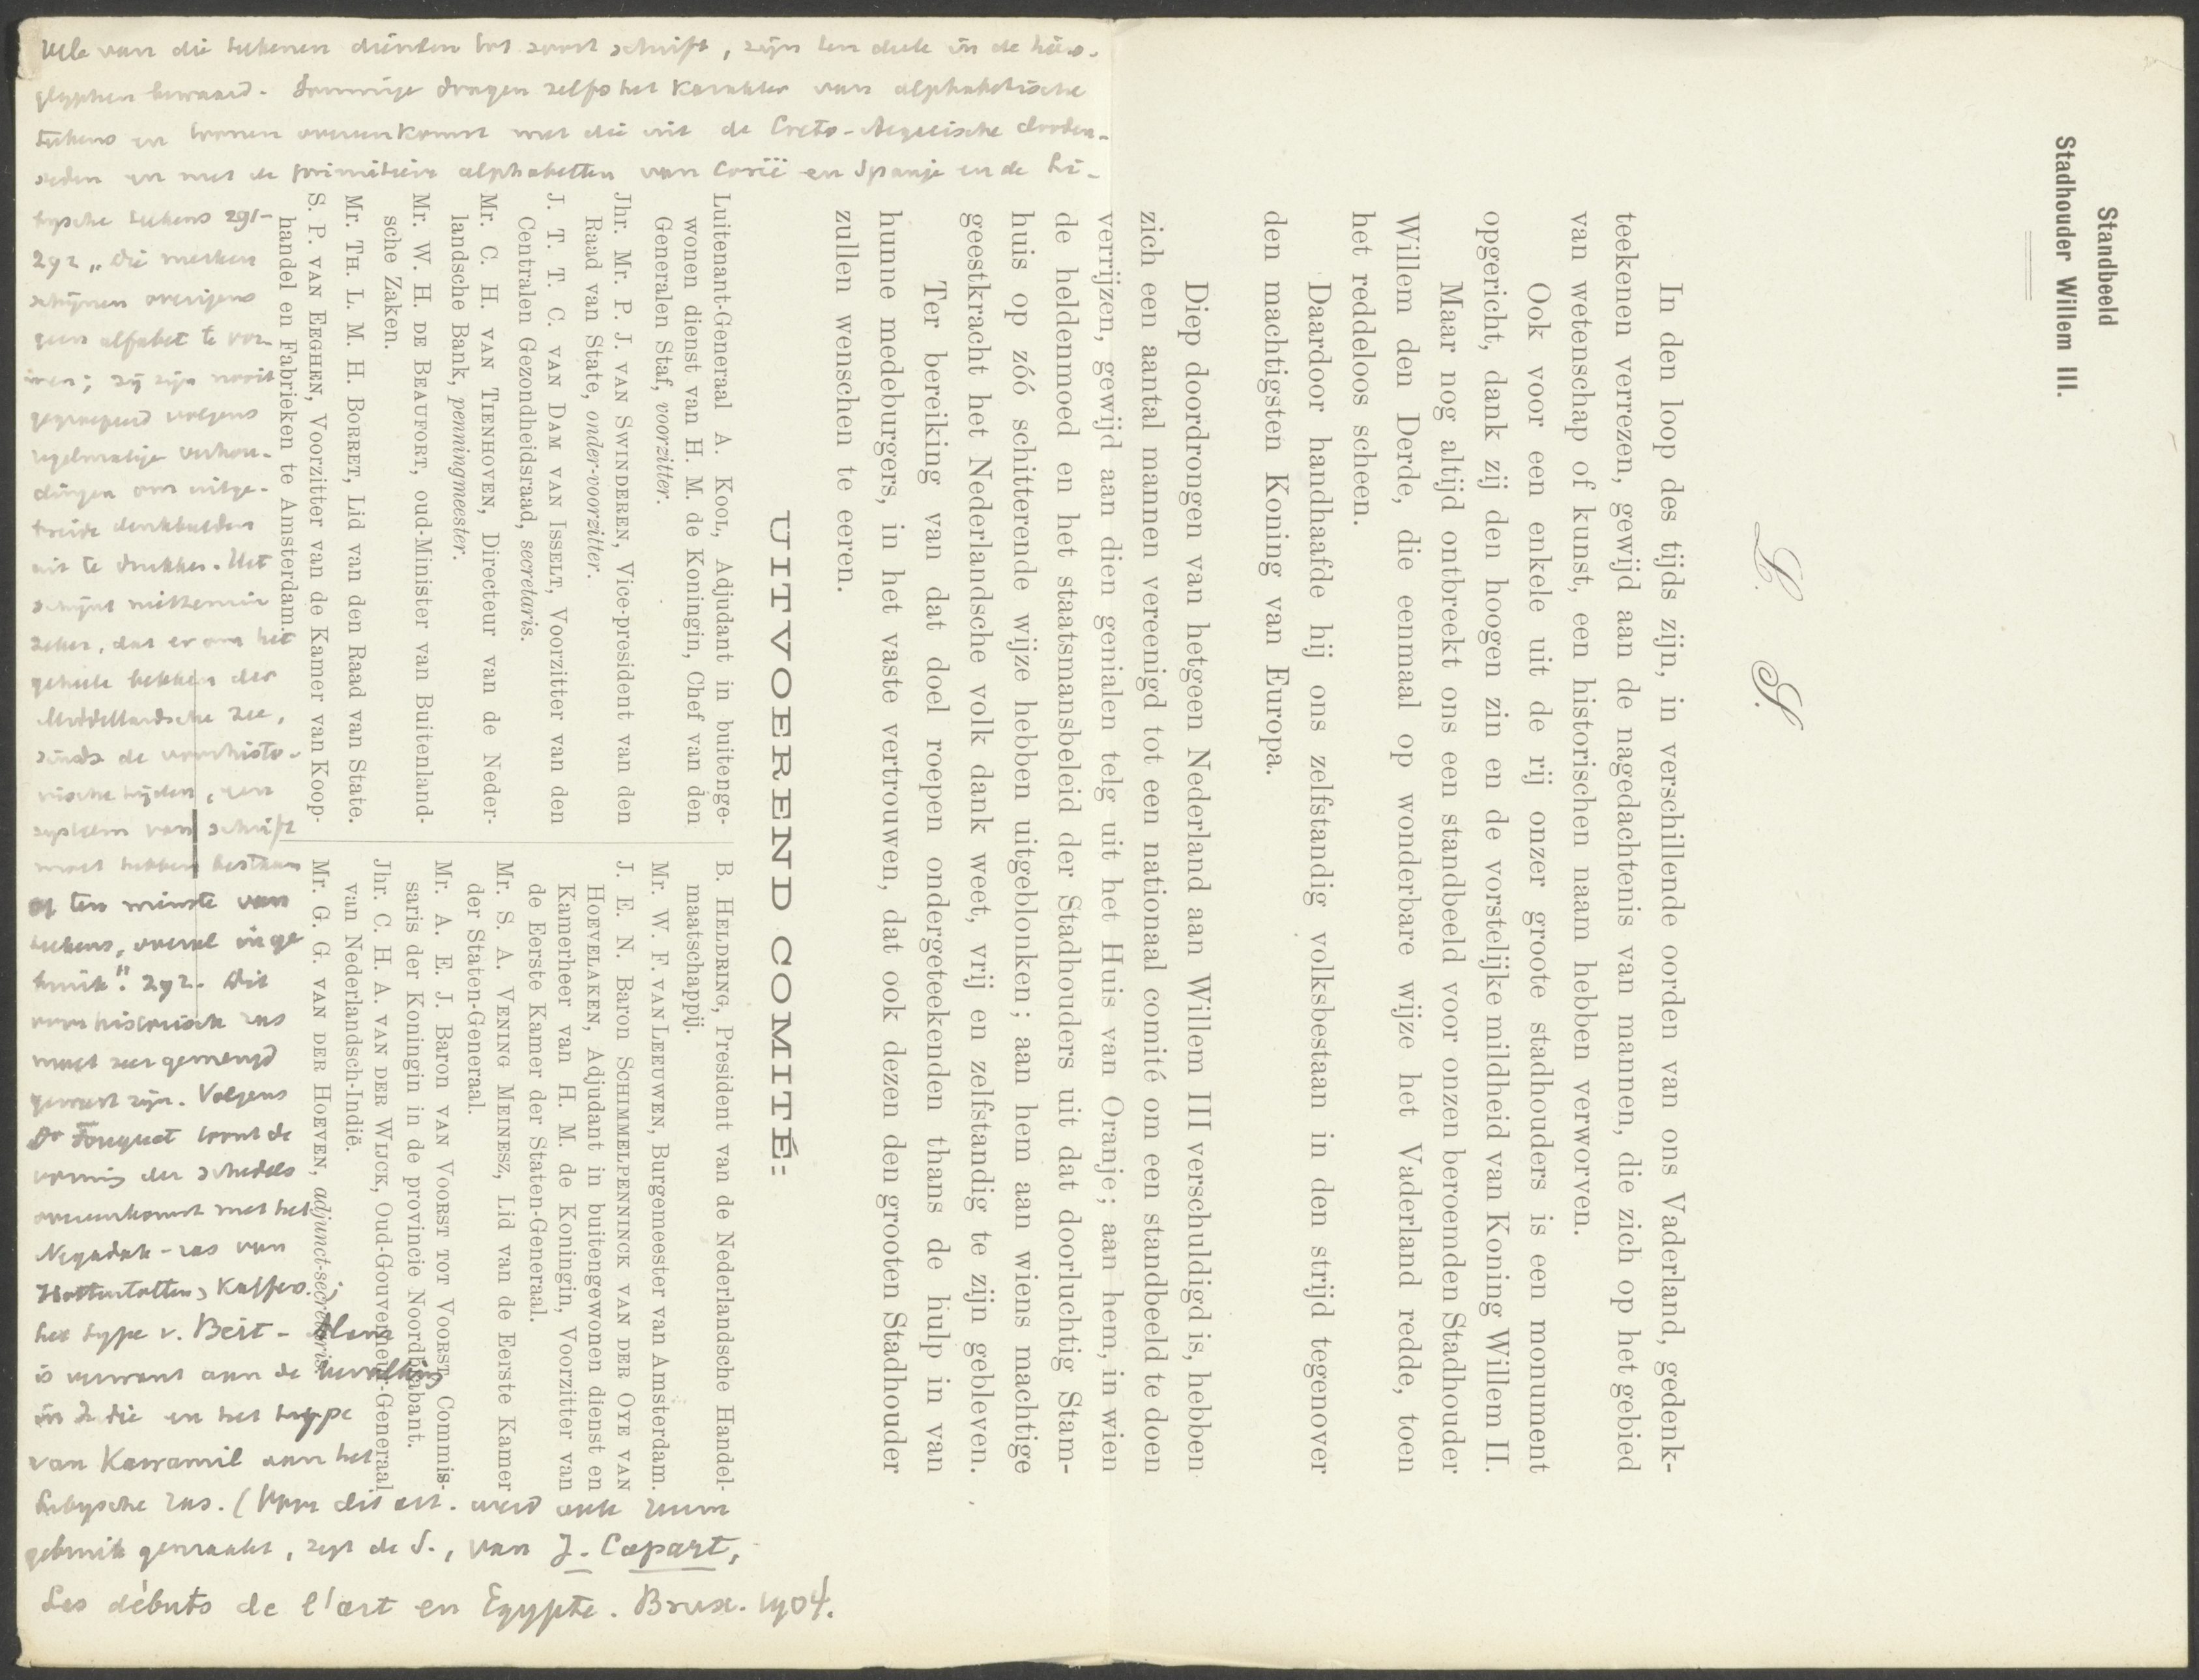 Standbeeld
Stadhouder Willem III.
L. S.
In den loop des tijds zijn, in verschillende oorden van ons Vaderland, gedenk-
teekenen verrezen, gewijd aan de nagedachtenis van mannen, die zich op het gebied
van wetenschap of kunst, een historischen naam hebben verworven.
Ook voor een enkele uit de rij onzer groote stadhouders is een monument
opgericht, dank zij den hoogen zin en de vorstelijke mildheid van Koning Willem II.
Maar nog altijd ontbreekt ons een standbeeld voor onzen beroemden Stadhouder
Willem den Derde, die eenmaal op wonderbare wijze het Vaderland redde, toen
het reddeloos scheen.
Daardoor handhaafde hij ons zelfstandig volksbestaan in den strijd tegenover
den machtigsten Koning van Europa.
Diep doordrongen van hetgeen Nederland aan Willem III verschuldigd is, hebben
zich een aantal mannen vereenigd tot een nationaal comité om een standbeeld te doen
verrijzen, gewijd aan dien genialen telg uit het Huis van Oranje; aan hem, in wien
de heldenmoed en het staatsmansbeleid der Stadhouders uit dat doorluchtig Stam-
huis op zóó schitterende wijze hebben uitgeblonken; aan hem aan wiens machtige
geestkracht het Nederlandsche volk dank weet, vrij en zelfstandig te zijn gebleven.
Ter bereiking van dat doel roepen ondergeteekenden thans de hulp in van
hunne medeburgers, in het vaste vertrouwen, dat ook dezen den grooten Stadhouder
zullen wenschen te eeren.
UITVOEREND COMITÉ:
Luitenant-Generaal A. Kool, Adjudant in buitenge-
wonen dienst van H. M. de Koningin, Chef van den
Generalen Staf, voorzitter.
Jhr. Mr. P. J. van Swinderen, Vice-president van den
Raad van State, onder-voorzitter.
J. T. T. C. van Dam van Isselt, Voorzitter van den
Centralen Gezondheidsraad, secretaris.
Mr. C. H. van Tienhoven, Directeur van de Neder-
landsche Bank, penningmeester.
Mr. W. H. de Beaufort, oud-Minister van Buitenland-
sche Zaken.
Mr. Th. L. M. H. Borret, Lid van den Raad van State.
S. P. van Eeghen, Voorzitter van de Kamer van Koop-
handel en Fabrieken te Amsterdam.
B. Heldring, President van de Nederlandsche Handel-
maatschappij.
Mr. W. F. van Leeuwen, Burgemeester van Amsterdam.
J. E. N. Baron Schimmelpenninck van der Oye van
Hoevelaken, Adjudant in buitengewonen dienst en
Kamerheer van H. M. de Koningin, Voorzitter van
de Eerste Kamer der Staten-Generaal.
Mr. S. A. Vening Meinesz, Lid van de Eerste Kamer
der Staten-Generaal.
Mr. A. E. J. Baron van Voorst tot Voorst, Commis-
saris der Koningin in de provincie Noordbrabant.
Jhr. C. H. A. van der Wijck, Oud-Gouverneur-Generaal
van Nederlandsch-Indië.
Mr. G. G. van der Hoeven, adjunct-secretaris.
van die teekenen dienden tot soort schrift, zijn ten deele in de hiëro-
glyphen bewaard. Sommige dragen zelfs het karakter van alphabetische
teekens en toonen overeenkomst met die uit de Creto-Aegeische
en met de primitieve alphabetten van Carië en Spanje en de Li-
bysche teekens 291-
292 „die merken
schijnen overigens
geen alfabet te vor-
men; zij zijn nooit
gegroepeerd volgens
regelmatige verhou-
dingen om uitge-
breide denkbeelden
uit te drukken. Het
schijnt niettemin
zeker, dat er om het
geheele bekken der
Middellandsche zee,
sinds de voorhisto-
rische tijden, een
systeem van schrift
moet hebben bestaan
of ten minste van
teekens, overal in ge
bruik". 292. Dit
voorhistorisch ras
moet zeer gemengd
geweest zijn. Volgens
Dr Fouquet toont de
vorming der schedels
overeenkomst met het
Negadah-ras van
Hottentotten, Kaffers;
het type v. Beit-Alam
is verwant aan de bevolking
in Indie en het type
van Kawamil aan het
Libysche ras. (Voor dit art. werd ook ruim
gebruik gemaakt, zegt de S., van J. Capart,
Les débuts de l'art en Egypte. Brux. 1904.